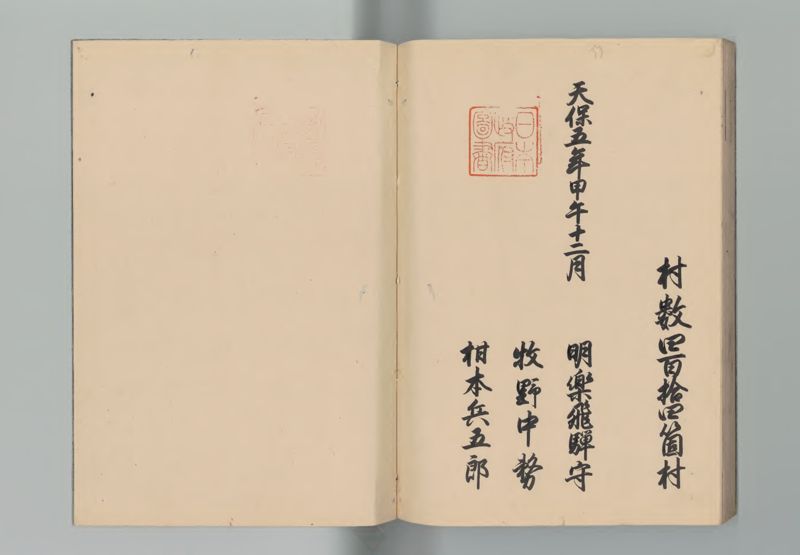 村数四百拾四箇村
天保五年甲午十二月
明楽飛騨守
牧野中務
柑本兵五郎
日本
政府
圖書